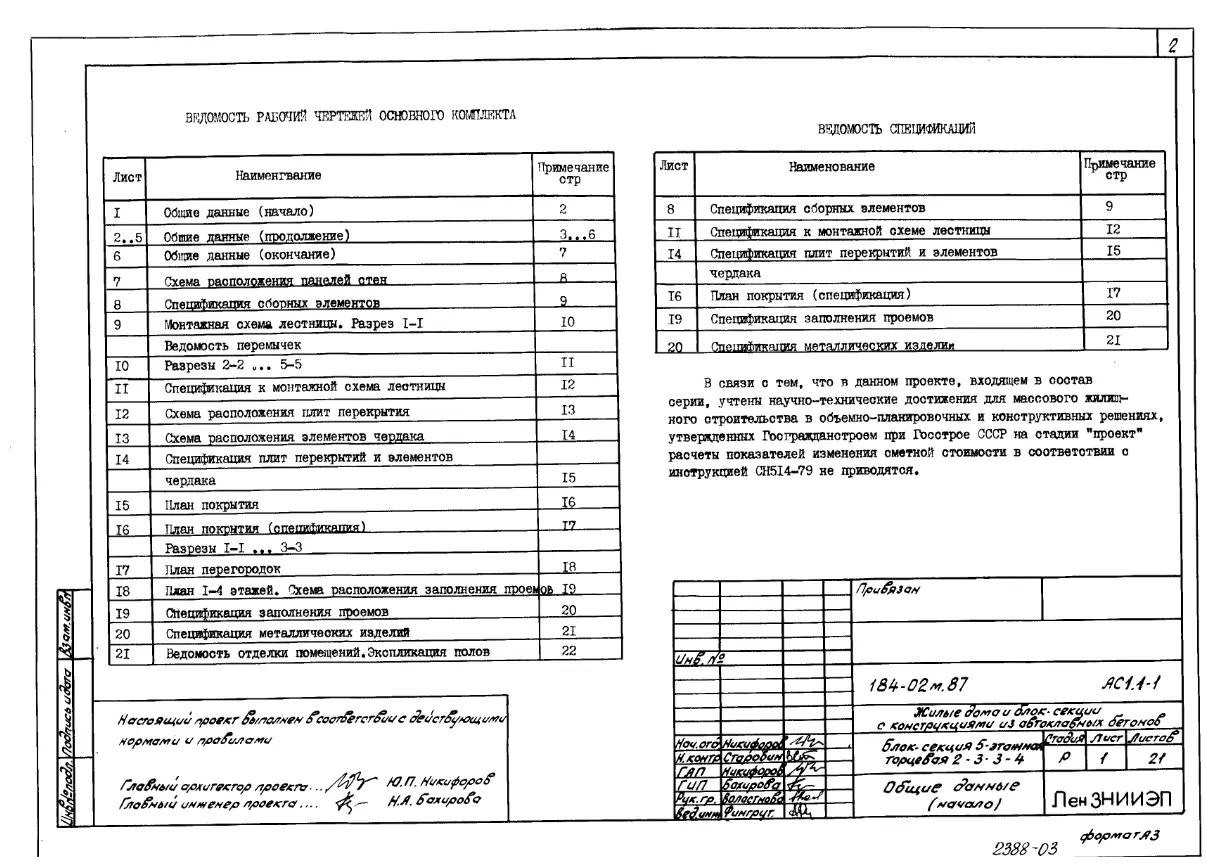 2
ВЕДОМОСТЬ РАБОЧИЙ ЧЕРТЕЖЕЙ ОСНОВНОГО КОМПЛЕКТА
Лист Наименгвание Примечание стр
I Общие данные (начало) 2
2..5 Общие данные (продолжение) 3...6
6 Общие данные (окончание) 7
7 Схема расположения панелей стен 8
8 Спецификация сборных элементов 9
9 Монтажная схема лестницы. Разрез I-I 10
Ведомость перемычек
10 Разрезы 2-2 ... 5-5 II
II Спецификация к монтажной схема лестницы I2
I2 Схема расположения плит перекрытия I3
I3 Схема расположения элементов чердака I4
I4 Спецификация плит перекрытий и элементов
чердака I5
I5 План покрытия I6
I6 План покрытия (спецификация) I7
Разрезы I-I ... 3-3
I7 План перегородок I8
I8 План I-4 этажей. Схема расположения заполнения проемов I9
I9 Спецификация заполнения проемов 20
20 Спецификация металлических изделий 2I
2I Ведомость отделки помещений.Экспликация полов 22
ВЕДОМОСТЬ СПЕЦИФИКАЦИЙ
Лист Наименование Примечание стр
8 Спецификация сборных элементов 9
II Спецификация к монтажной схеме лестницы I2
I4 Спецификация плит перекрытий и элементов I5
чердака
I6 План покрытия (спецификация) I7
I9 Спецификация заполнения проемов 20
20 Спецификация металлических изделии 2I
В связи с тем, что в данном проекте, входящем в состав
серии, учтены научно-технические достижения для массового жилищ-
ного строительства в объемно-планировочных и конструктивных решениях,
утвержденных Госгражданстроем при Госстрое СССР на стадии "проект"
расчеты показателей изменения сметной стоимости в соответствии с
инструкцией СН5I4-79 не приводятся.
Настоящий проект выполнен в соответствии с действующими
нормами и правилами
Главный архитектор проекта... Ю.П. Никифоров
Главный инженер проекта.... Н.Я. Бахирова
Инв.№подл. Подпись и дата Взам.инв.№
Привязан
Инв. №
184-02м.87 АС1.1-1
Жилые дома и блок-секции
с конструкциями из автоклавных бетонов
Нач.отд Никифоров
Н.контр Старовин
ГАП Никифоров
ГИП Бахирова
Рук.гр. Воластнова
Вед.инж Фингрут
блок-секция 5-этажная
торцевая 2-3-3-4
Стадия Лист Листов
Р 1 21
Общие данные
(начало)
ЛенЗНИИЭП
формат А3
2388-03